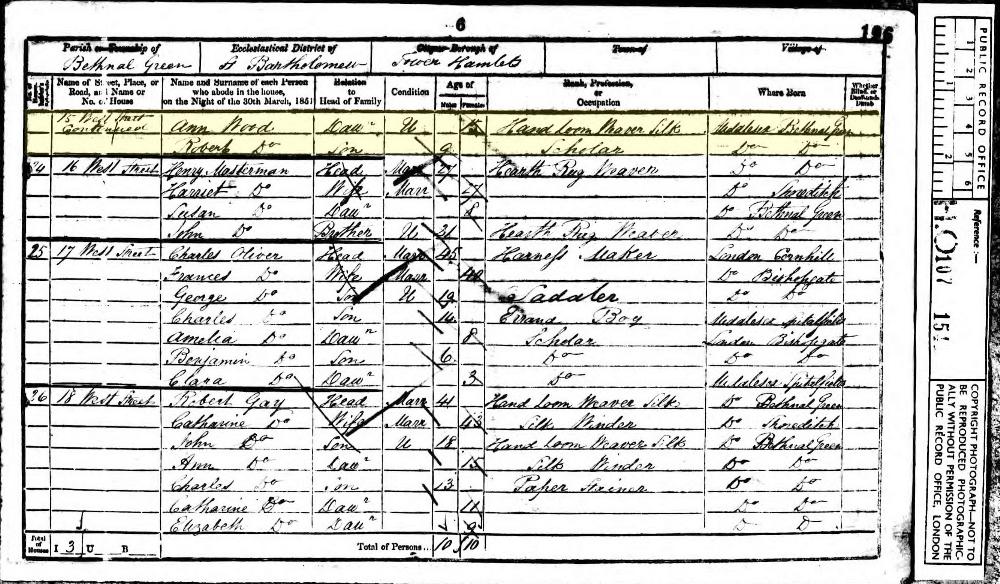 6
Parish or Township of Ecclesiastical District of City or Borough of Town of Village of
Bethnal Green St Bartholomew Tower Hamlets
Name of Street, Place, or Road, and Name or No. of House Name and Surname of each Person who abode in the house, on the Night of the 30th March, 1851 Relation to Head of Family Condition Age of Males Females Rank, Profession, or Occupation Where Born Whether Blind, or Deaf-and-Dumb
15 West Street Continued Ann Wood Dau'r U 15 Hand Loom Weaver Silk Middlesex Bethnal Green
Robert Do Son 9 Scholar Do Do
24 16 West Street Henry Masterman Head Marr 27 Hearth Rug Weaver Do Do
Harriet Do Wife Marr 27 Do Shoreditch
Susan Do Dau'r Do Bethnal Green
John Do Brother U 21 Hearth Rug Weaver Do Do
25 17 West Street Charles Oliver Head Marr 45 Harness Maker London Cornhill
Frances Do Wife Marr 40 Do Bishopgate
George Do Son U 19 Saddler Do Do
Charles Do Son 14 Errand Boy Middlesex Spitalfields
Amelia Do Dau'r 8 Scholar London Bishopgate
Benjamin Do Son 6 Do Do Do
Clara Do Dau'r 3 Do Middlesex Spitalfields
26 18 West Street Robert Gay Head Marr 41 Hand Loom Weaver Silk Do Bethnal Green
Catharine Do Wife Marr 43 Silk Winder Do Shoreditch
John Do Son U 18 Hand Loom Weaver Silk Do Bethnal Green
Ann Do Dau'r 15 Silk Winder Do Do
Charles Do Son 13 Paper Stainer Do Do
Catharine Do Dau'r 11 Do Do
Elizabeth Do Dau'r 9 D D
Total of Houses I 3 U B Total of Persons... 10 10
PUBLIC RECORD OFFICE
1 2 3 4 5 6
Reference:-
H.O. 107
COPYRIGHT PHOTOGRAPH-NOT TO BE REPRODUCED PHOTOGRAPHICALLY WITHOUT PERMISSION OF THE PUBLIC RECORD OFFICE, LONDON